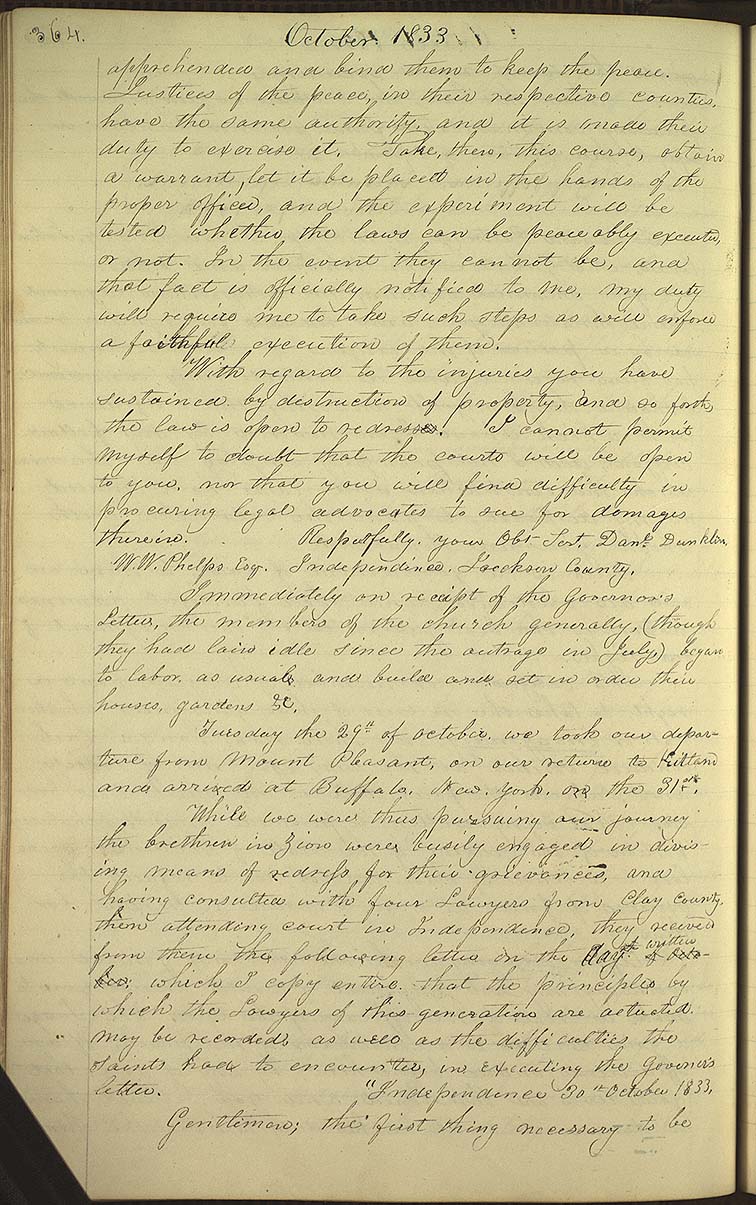 364.
October 1833
apprehended and bind them to keep the peace.
Justices of the peace, in their respective counties,
have the same authority, and it is made their
duty to exercise it. Take, then, this course, obtain
a warrant, let it be placed in the hands of the
proper officer, and the experiment will be
tested whether the laws can be peaceably executed,
or not. In the event they cannot be, and
that fact is officially notified to me, my duty
will require me to take such steps as will enforce
a faithful execution of them.
With regard to the injuries you have
sustained by destruction of property, and so forth,
the law is open to redress. I cannot permit
myself to doubt that the courts will be open
to you, nor that you will find difficulty in
procuring legal advocates to sue for damages
therein. Respectfully. your Obt Sert. Danl. Dunklin.
W. W. Phelps Esq. Independence. Jackson County.
Immediately on receipt of the Governor's
Letter, the members of the church generally, (though
they had lain idle since the outrage in July,) began
to labor, as usual, and build and set in order their
houses, gardens &c.
Tuesday the 29th of october. we took our depar-
ture from Mount Pleasant, on our return to Kirtland
and arrived at Buffalo, New. York. on the 31st.
While we were thus pursuing our journey
the brethren in Zion were busily engaged in divis-
ing means of redress for their grievances, and
having consulted with four Lawyers from Clay County,
then attending court in Independence, they received
from them the following letter on the day it written
of Octo-
ber. which I copy entire. that the principles by
which the Lawyers of this generation are actuated.
may be recorded, as well as the difficulties the
saints had to encounter, in executing the Governor's
letter. "Independence 30th October 1833,
Gentlemen; the first thing necessary to be